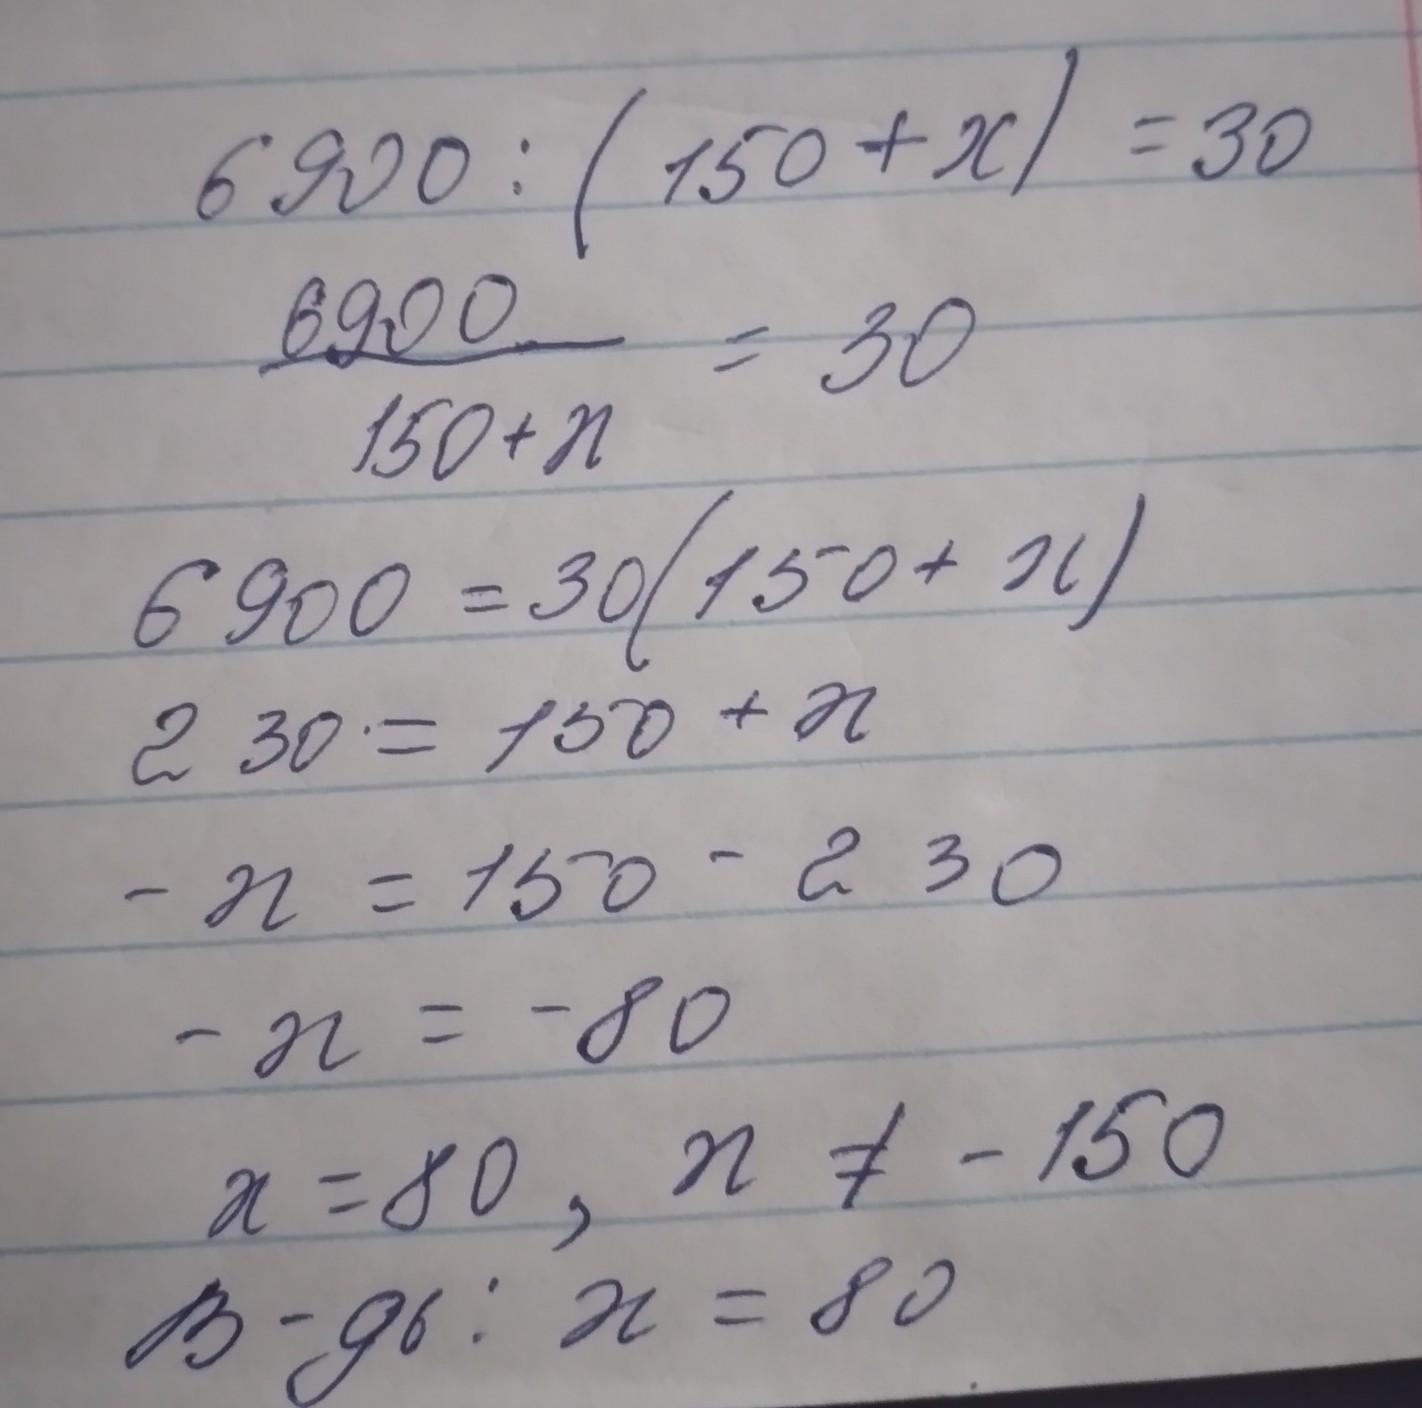 6900 : (150 + x) = 30
6900
150 + x
= 30
6900 = 30(150 + x)
230 = 150 + x
- x = 150 - 230
- x = - 80
x = 80, x ≠ - 150
В-дь: x = 80